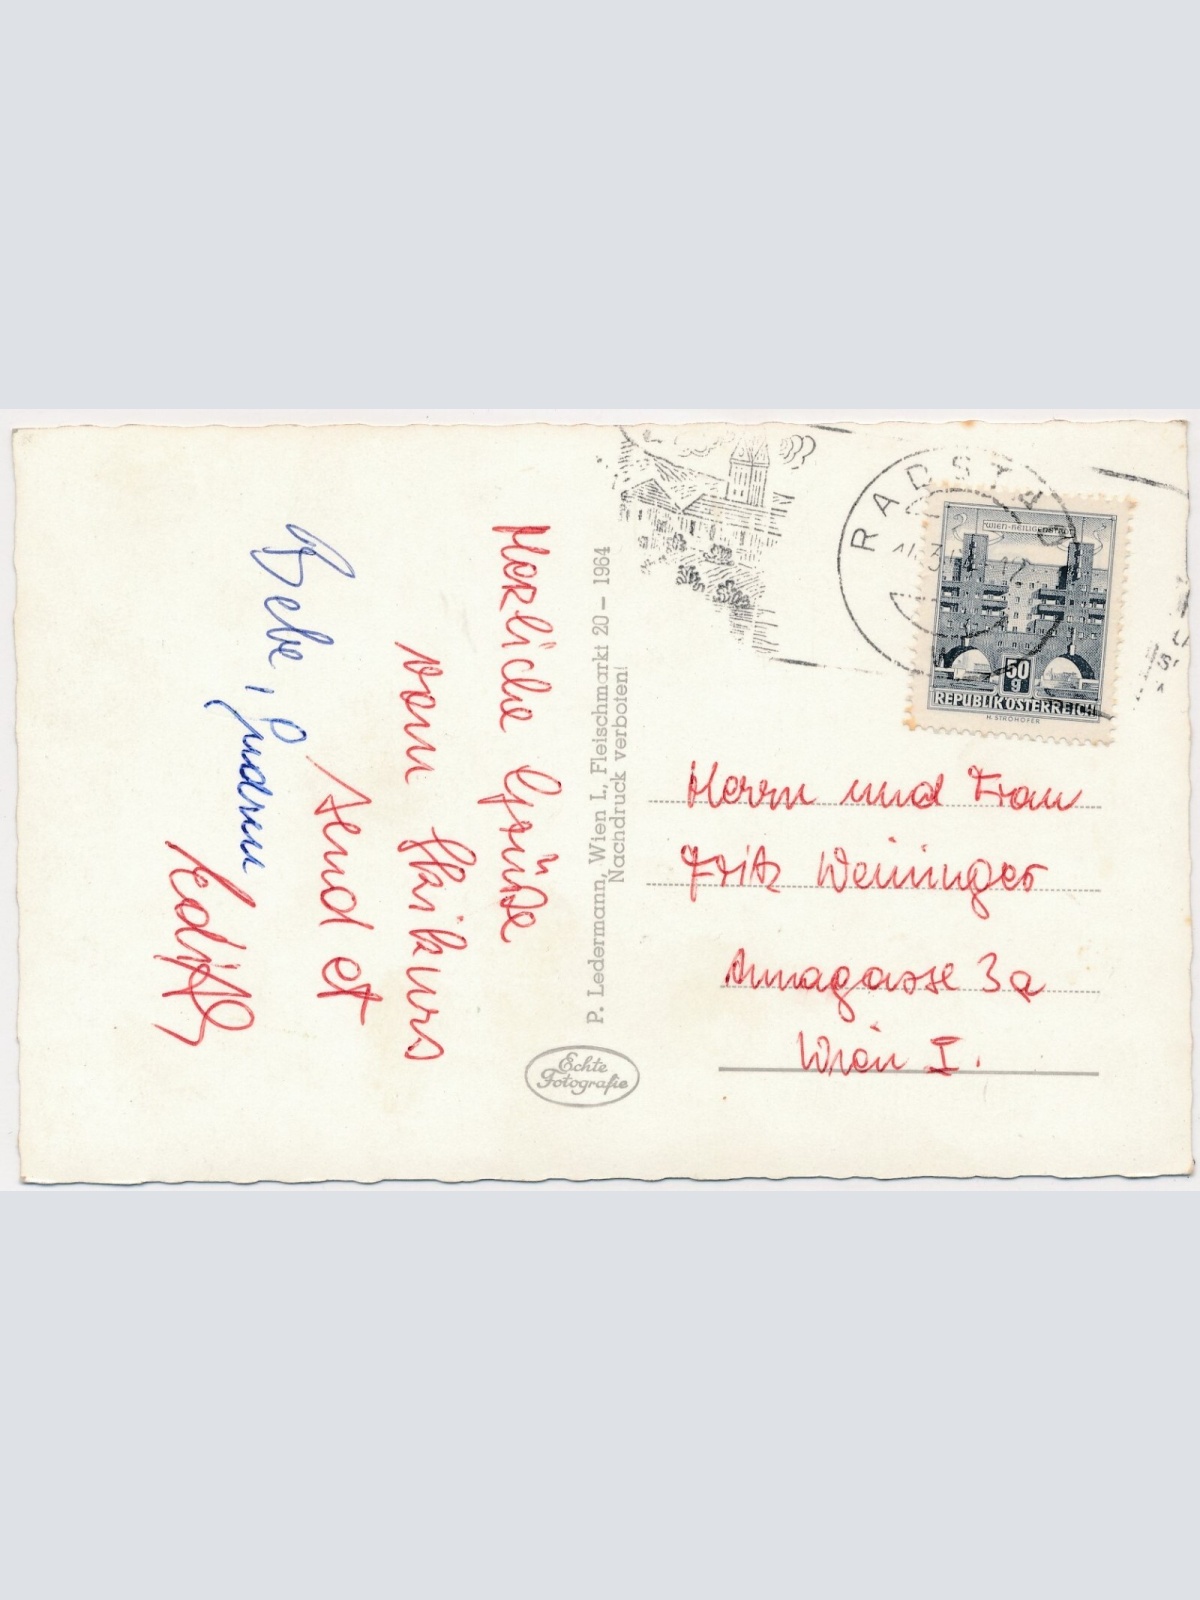 Herzliche Grüße
vom Skikurs
send et
Edith
Bebe,
P. Ledermann, Wien I., Fleischmarkt 20 – 1964
Nachdruck verboten!
Echte
Fotografie
RADSTADT
2 WIEN-HEILIGENSTADT
50
g
REPUBLIK ÖSTERREICH
H. STROHOFER
Herrn und Frau
Fritz Weininger
Annagasse 3a
Wien I.